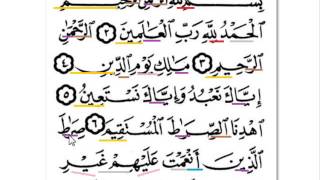 بِسْمِ ٱللَّهِ ٱلرَّحْمَٰنِ ٱلرَّحِيمِ
ٱلْحَمْدُ لِلَّهِ رَبِّ ٱلْعَٰلَمِينَ ٢ ٱلرَّحْمَٰنِ
ٱلرَّحِيمِ ٣ مَٰلِكِ يَوْمِ ٱلدِّينِ ٤
إِيَّاكَ نَعْبُدُ وَإِيَّاكَ نَسْتَعِينُ ٥
ٱهْدِنَا ٱلصِّرَٰطَ ٱلْمُسْتَقِيمَ ٦ صِرَٰطَ
ٱلَّذِينَ أَنْعَمْتَ عَلَيْهِمْ غَيْرِ